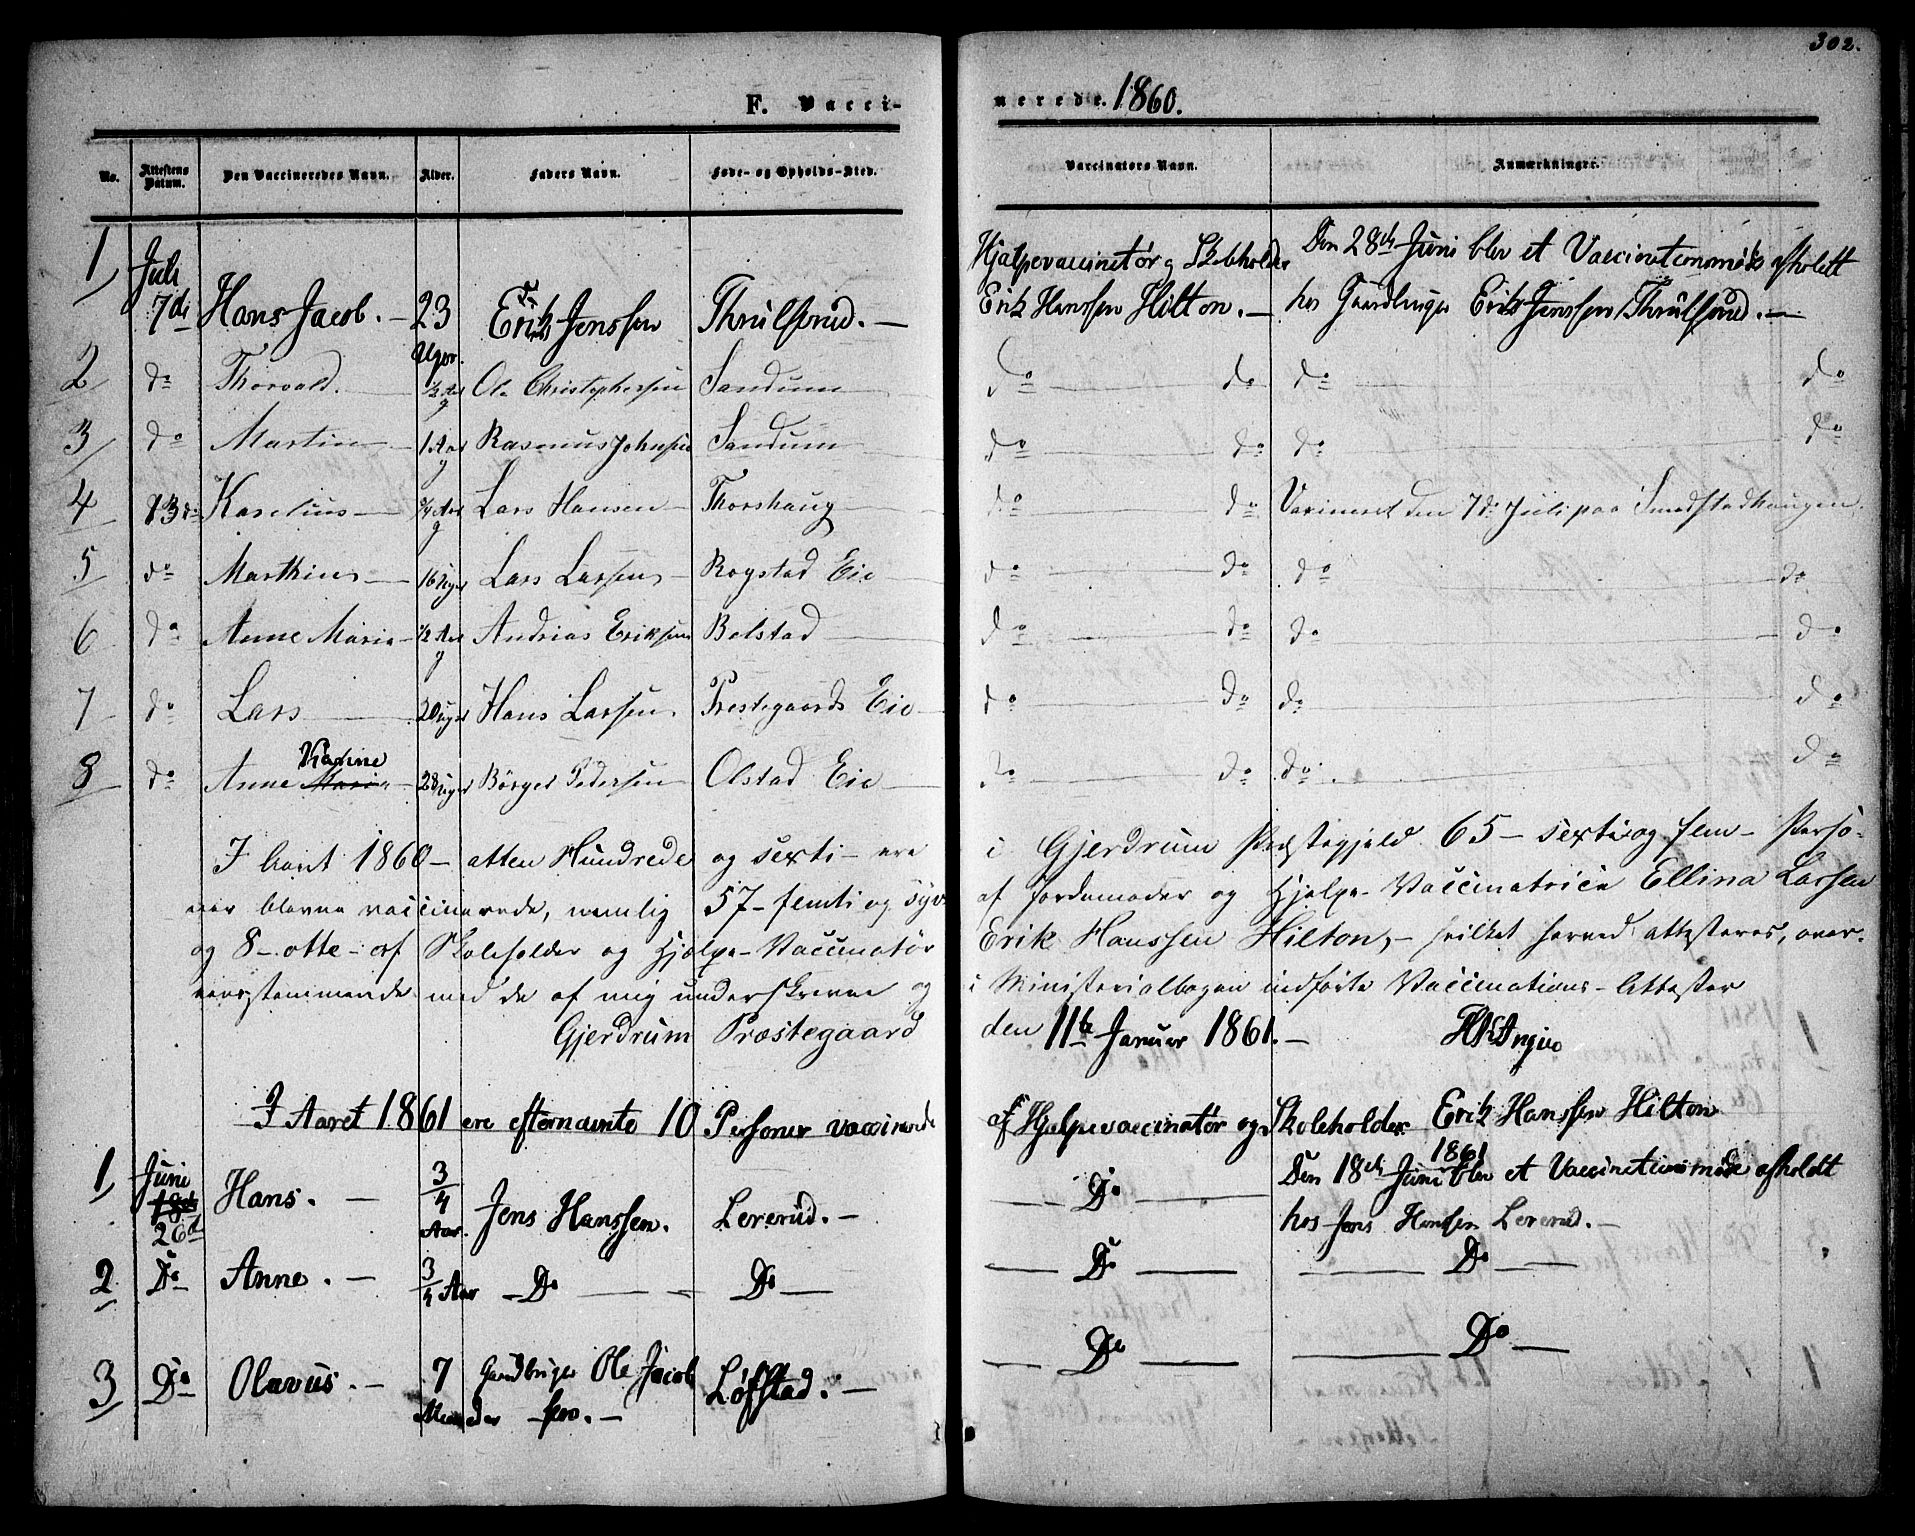 302.
F. Vacci- nerede. 1860.
No. Attestens Datum. Den Vaccineredes Navn. Alder. Faders Navn. Føde- og Opholds-Sted. Vaccinators Navn. Anmærkninger.
1, Juli Hjælpevaccinatør og Skoleholder Den 28de Juni blev et Vaccinationsmøde afholdt
7de Hans Jacob. — 23 Erik Jenssen Thrulsrud. — Erik Hanssen Hilton. — hos Gaardbruger Erik Jenssen Thrulsrud. —
Uger.
2 do Thorvald. ½ Aar Ole Christophersen Sandum do do do do
g
3 do Martin 1 Aar Rasmus Johnsen Sandum do do do do
g
4 13de Karelius ¾ Aar Lars Hansen Thorshaug do do Vaxineret den 7de Juli paa Smedstadhaugen.
g
5 do Marthin 16 Uger Lars Larsen Rogstad Eie do do do do
6 do Anne Marie ½ Aar Andrias Eriksen Bolstad do do do do
g
7 do Lars 20 Uger Hans Larsen Prestegaards Eie do do do do
Karine
8 do Anne Marie 28 Uger Børger Pedersen Olstad Eie do do do do
I Aaret 1860 – atten Hundrede og sexti – ere i Gjerdrum Præstegjeld 65 – sexti og fem – Perso-
ner blevne vaccinerede, nemlig 57 – femti og syv af Jordemoder og Hjelpe-Vaccinatrice Ellina Larsen
og 8 – otte – af Skoleholder og Hjelpe-Vaccinatør Erik Hanssen Hilton, – hvilket herved attesteres, over-
eensstemmende med de af mig underskrevne og i Ministerialbogen indførte Vaccinations-Attester
Gjerdrum Præstegaard den 11te Januar 1861. —
I Aaret 1861 ere efternævnte 10 Personer vaccinerede af Hjelpevaccinatør og Skoleholder Erik Hanssen Hilton
1, Juni Hans. — ¾ Jens Hanssen. Lererud. — Do Den 18de Juni 1861 blev et Vaccinationsmøde afholdt
18de Aar. hos Jens Hansen Lererud. —
26de
2 Do Anne. — ¾ Aar Do Do Do Do
3 Do Olavus. — 7 Gaardbruger Ole Jacob Løfstad. — Do Do
Maaneder sen. —